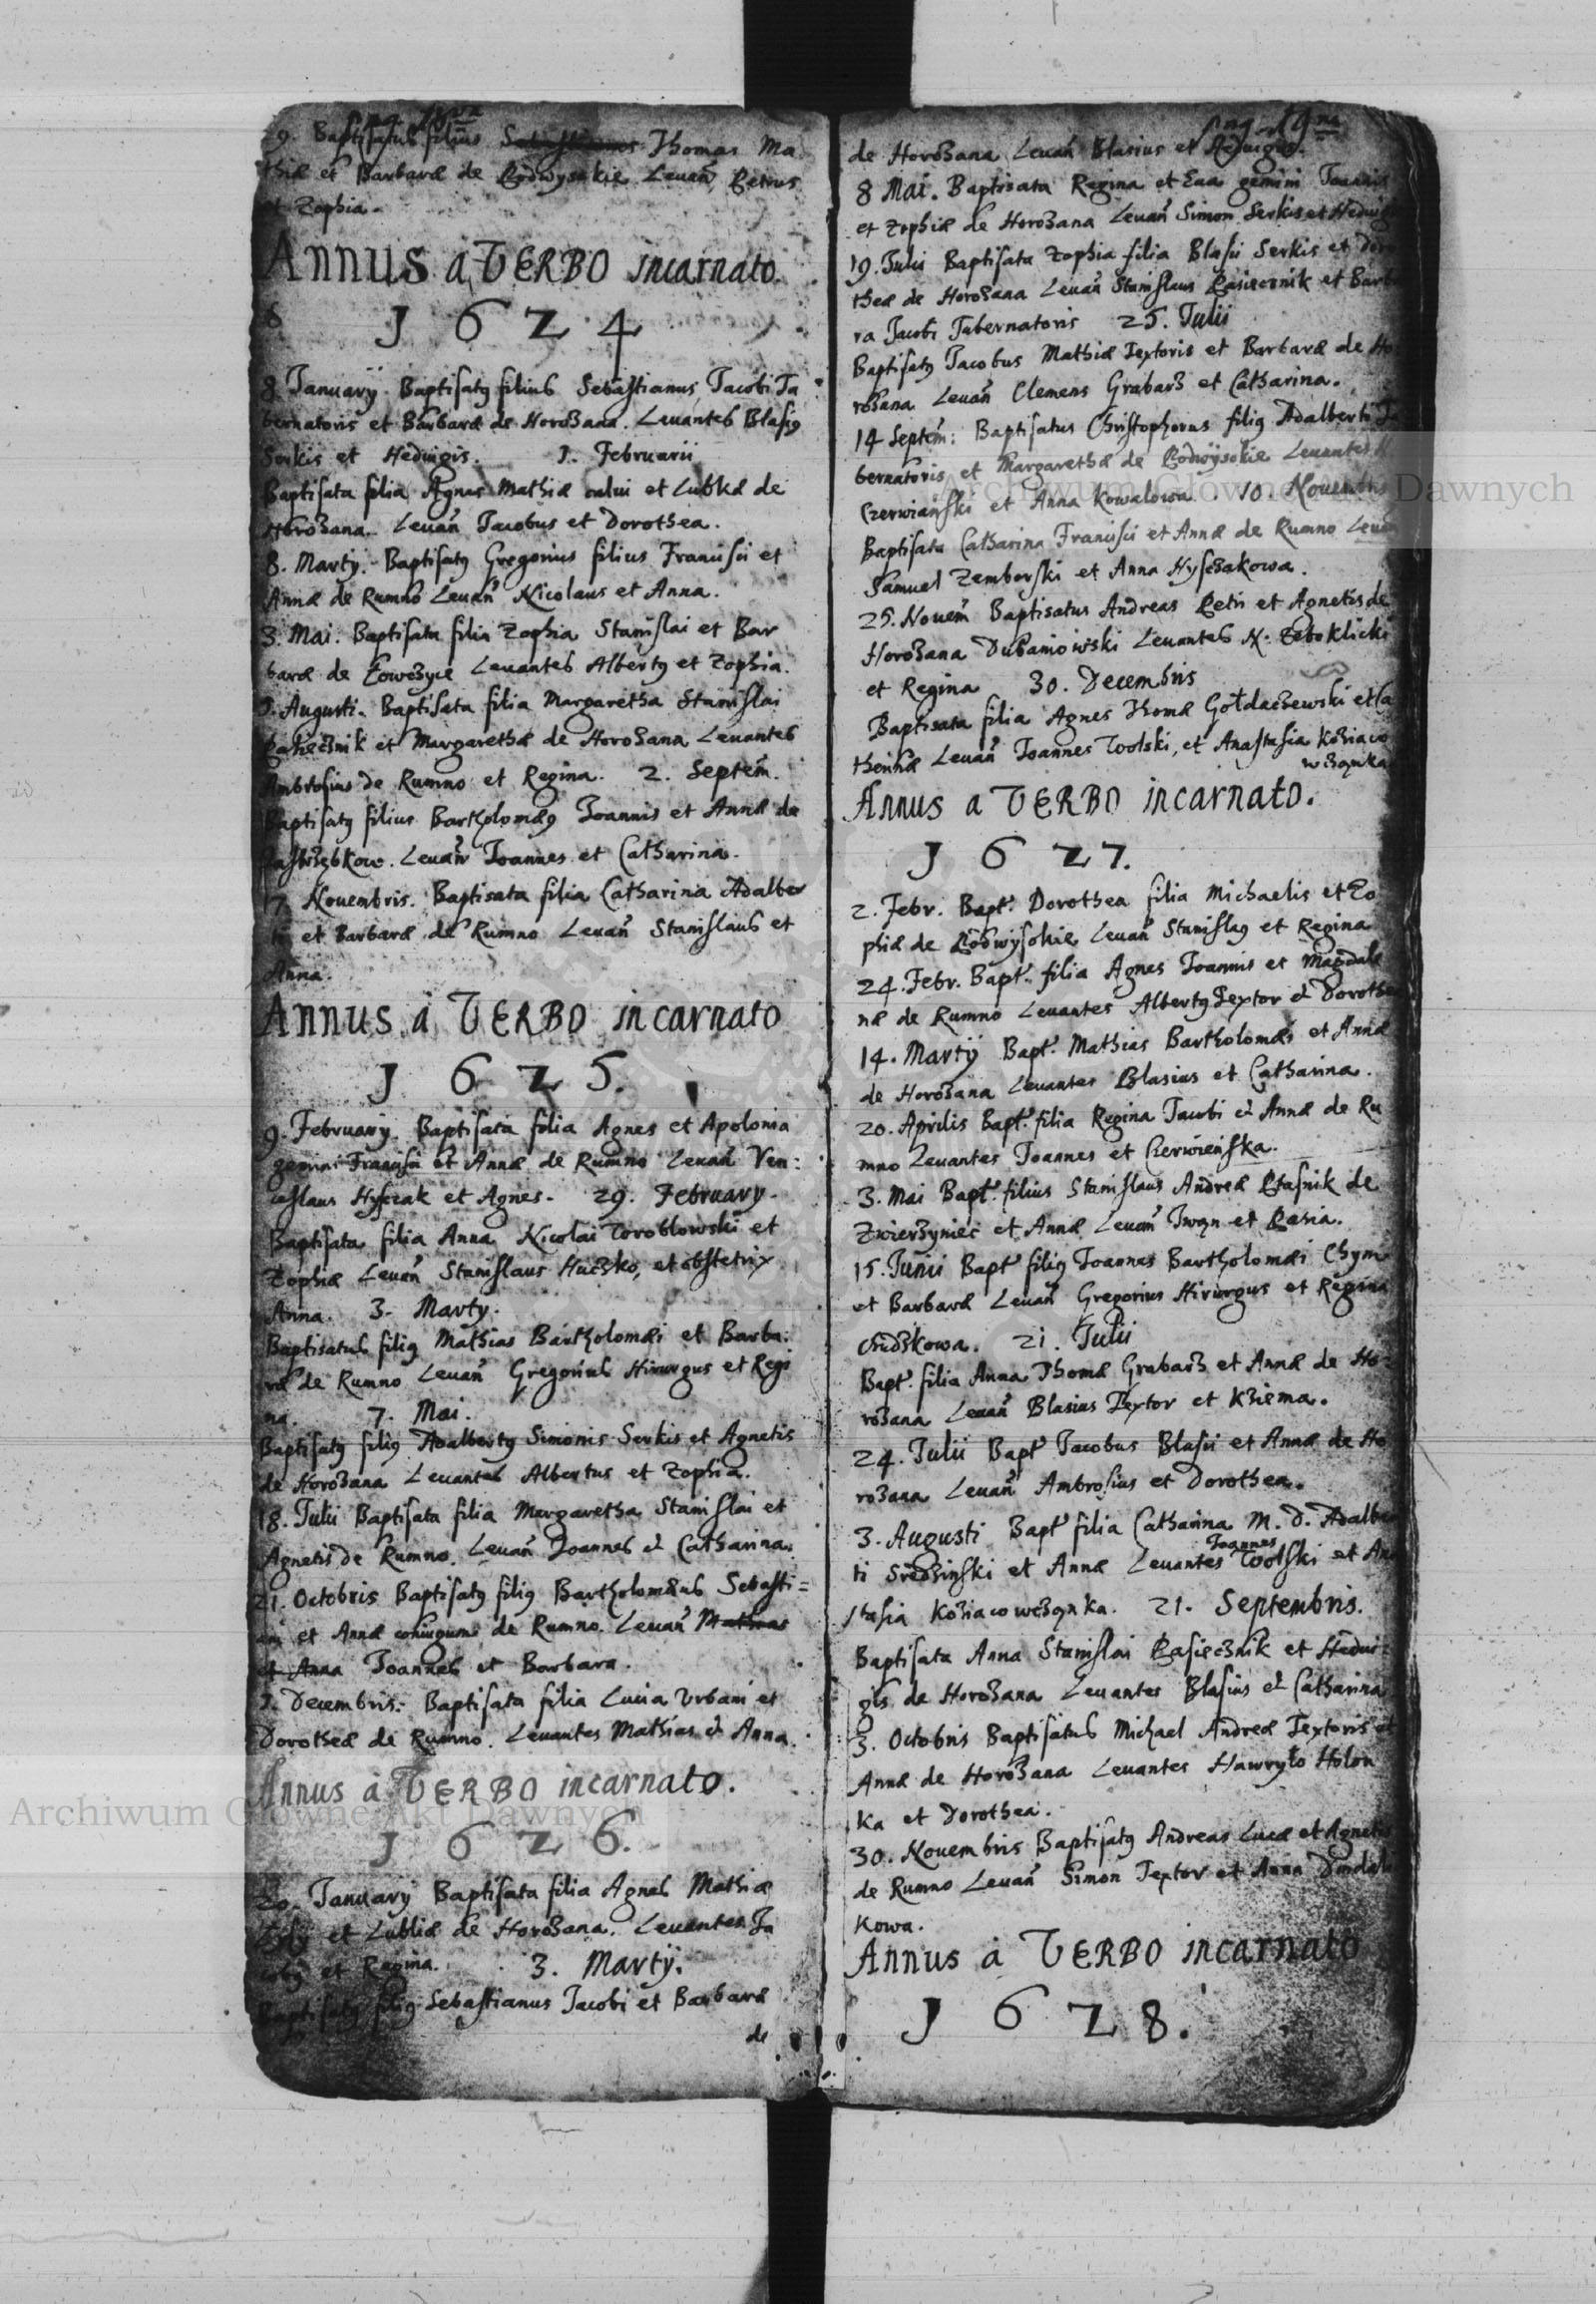 9. Baptisatus filius Sebastianus Thomas Ma
thiæ et Barbaræ de Podwysokie Leuañ Petrus
et Zophia.
Annus a VERBO incarnato.
1624
8. January. Baptisatꝯ filius Sebastianus Jacobi Ta
bernatoris et Barbaræ de Horożana. Leuantes Blasiꝯ
Serkis et Hedwigis. 1. Februarii
Baptisata filia Agnes Mathiæ calui et Lubkæ de
Horożana. Leuañ Jacobus et Dorothea.
8. Marty. Baptisatꝯ Gregorius filius Francisci et
Annæ de Rumno Leuañ Nicolaus et Anna.
3. Mai. Baptisata filia Zophia Stanislai et Bar
baræ de Leuantes Albertꝯ et Zophia.
1. Augusti. Baptisata filia Margaretha Stanislai
Pasiecznik et Margarethæ de Horożana Leuantes
Ambrosius de Rumno et Regina. 2. Septem̃.
Baptisatꝯ filius Bartholomæꝯ Joannis et Annæ de
Leuañ Joannes et Catharina.
17 Nouembris. Baptisata filia Catharina Adalber
ti et Barbaræ de Rumno Leuañ Stanislaus et
Anna.
Annus à VERBO incarnato
1625.
9. February. Baptisata filia Agnes et Apolonia
gemini Francisci et Annæ de Rumno Leuañ Ven:
ceslaus Hyszak et Agnes. 29. February.
Baptisata filia Anna Nicolai Woroblowski et
Zophiæ Leuañ Stanislaus Huczko, et obstetrix
Anna. 3. Marty.
Baptisatus filiꝯ Mathias Bartholomæi et Barba:
ræ de Rumno Leuañ Gregorius Hirurgus et Regi
na. 7. Mai.
Baptisatꝯ filiꝯ Adalbertꝯ Simonis Serkis et Agnetis
de Horożana Leuantes Albertus et Zophia.
18. Julii Baptisata filia Margaretha Stanislai et
Agnetis de Rumno. Leuañ Joannes et Catharina.
21. Octobris Baptisatꝯ filiꝯ Bartholomæus Sebasti=
ani et Annæ coniugum de Rumno. Leuañ Mathias
et Anna Joannes et Barbara.
1. Decembris. Baptisata filia Lucia Vrbani et
Dorotheæ de Rumno. Leuantes Mathias et Anna.
Annus à VERBO incarnato.
1626.
20. January Baptisata filia Agnes Mathiæ
Łysy et Lubliæ de Horożana. Leuantes Ja
cobꝯ et Regina. 3. Marty.
Baptisatꝯ filiꝯ Sebastianus Jacobi et Barbaræ
de
de Horożana Leuañ Blasius et Heduigis.
8 Mai. Baptisata Regina et Eua gemini Joannis
et Zophiæ de Horożana Leuañ Simon Serkis et Heduig
19. Julii Baptisata Zophia filia Blasii Serkis et Doro
theæ de Horożana Leuañ Stanislaus Pasiecznik et Barba
ra Jacobi Tabernatoris 25. Julii
Baptisatꝯ Jacobus Mathiæ Textoris et Barbaræ de Ho
rożana Leuañ Clemens Grabarz et Catharina.
14 Septem̃: Baptisatus Christophorus filiꝯ Adalberti Ta
bernatoris et Margarethæ de Podwysokie Leuantes
Czerwiański et Anna Kowalowa. 10. Nouembris
Baptisata Catharina Francisci et Annæ de Rumno Leuañ
Samuel Zemborski et Anna Hyszakowa.
25. Nouem̃ Baptisatus Andreas Petri et Agnetis de
Horożana Dubaniowski Leuantes N. Zeboklicki
et Regina 30. Decembris
Baptisata filia Agnes Thomæ Gołdaczewski et Ca
therinæ Leuañ Joannes Woolski, et Anastasia Koziaco
wcząnka
Annus a VERBO incarnato.
1627.
2. Febr. Bapt. Dorothea filia Michaelis et Zo
phiæ de Podwysokie Leuañ Stanislaꝯ et Regina
24. Febr. Bapt. filia Agnes Joannis et Magdale
næ de Rumno Leuantes Albertꝯ Textor et Dorothea
14. Martÿ Bapt. Mathias Bartholomæi et Annæ
de Horożana Leuantes Blasius et Catharina.
20. Aprilis Bapt. filia Regina Jacobi et Annæ de Ru
mno Leuantes Joannes et Czerwieńska.
3. Mai Bapt. filius Stanislaus Andreæ Ptasnik de
Zwierzyniec et Annæ Leuañ Iwan et Pasia.
15. Junii Bapt. filiꝯ Joannes Bartholomæi Chym
et Barbaræ Leuañ Gregorius Hirurgus et Regina
21. Julii
Bapt. filia Anna Thomæ Grabarz et Annæ de Ho:
rożana Leuañ Blasius Textor et Kziema.
24. Julii Bapt. Jacobus Blasii et Annæ de Ho
rożana Leuañ Ambrosius et Dorothea.
3. Augusti Bapt. filia Catharina M. D. Adalber
ti Sredzinski et Annæ Leuantes Joannes Woolski et Ana
stasia Koziacowcząnka. 21. Septembris.
Baptisata Anna Stanislai Pasiecznik et Hedui:
gis de Horożana Leuantes Blasius et Catharina
3. Octobris Baptisatus Michael Andreæ Textoris et
Annæ de Horożana Leuantes Hawryło Holon
ka et Dorothea.
30. Nouembris Baptisatꝯ Andreas Lucæ et Agnetis
de Rumno Leuañ Simon Textor et Anna
kowa.
Annus à VERBO incarnato
1628.
Archiwum Główne Akt Dawnych
Archiwum Główne Akt Dawnych